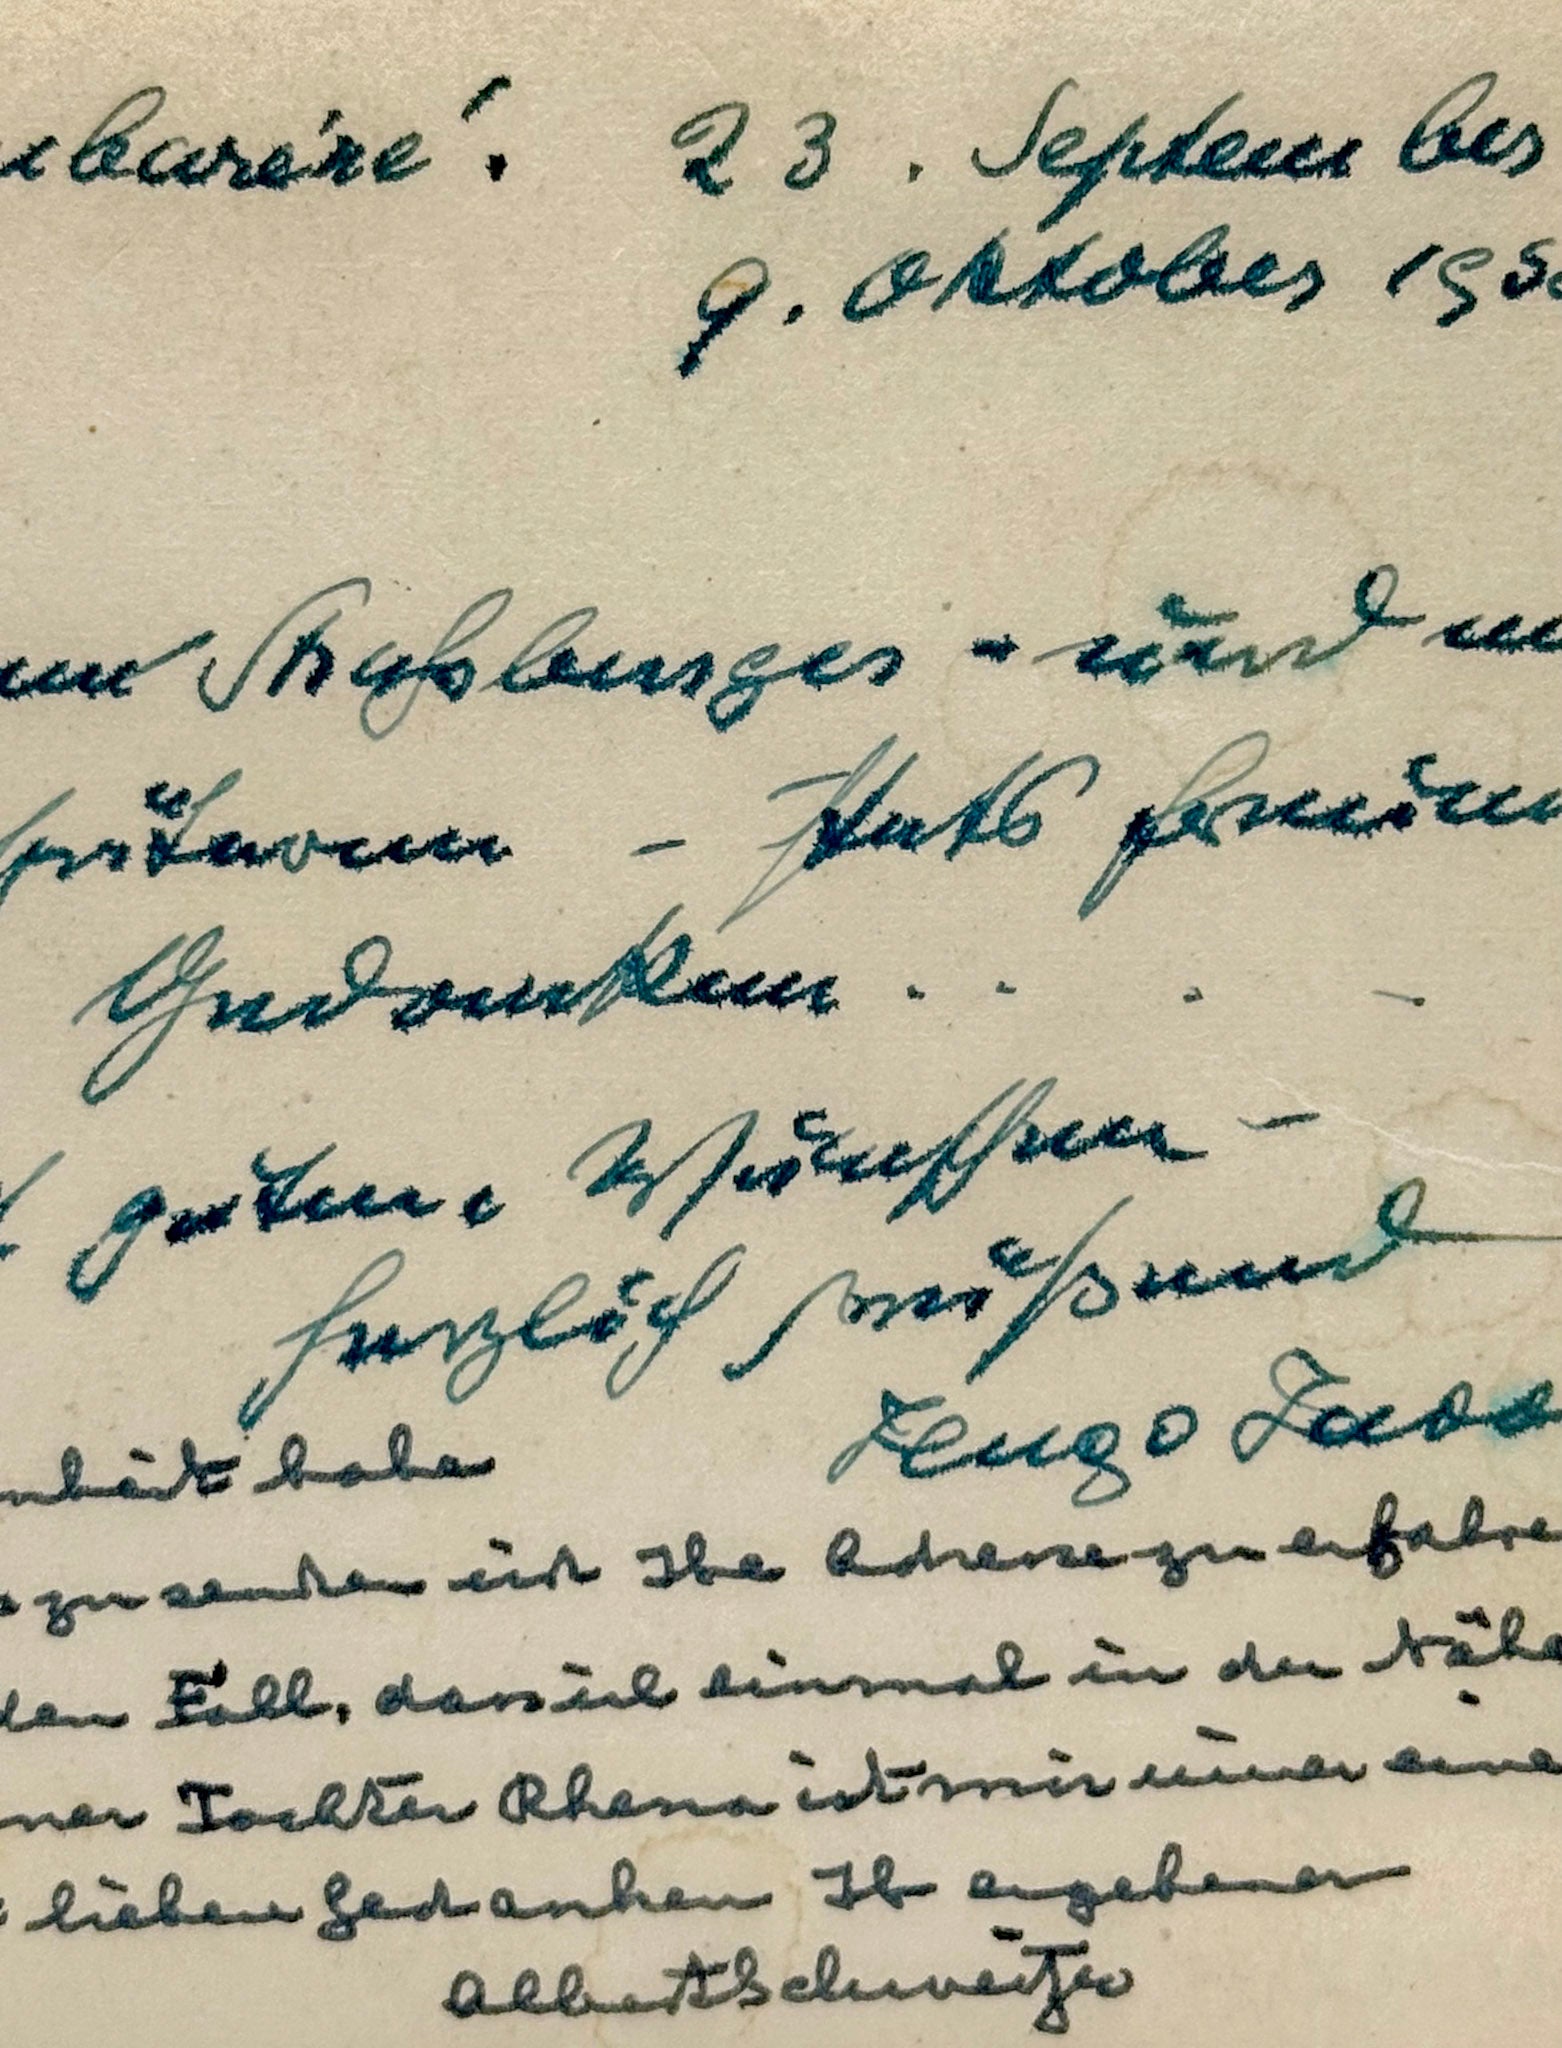 ambaréné! 23. September
9. Oktober 195
Straßburger - und
- stets
Gedanken . . . -
guten Wünschen -
herzlich grüßend
Hugo
habe
zu senden und Ihre Adresse zu erfahre
den Fall, dass ich einmal in der Nähe
ner Tochter Rhena ist mir immer eine
lieben Gedanken Ihr ergebener
Albert Schweitzer